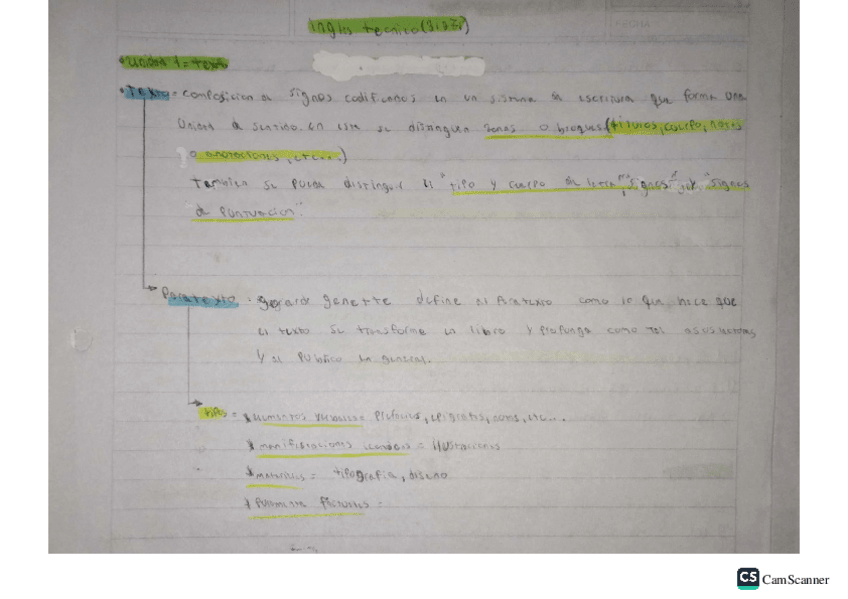 Ingles tecnico
Unidad 1 = texto
Texto = composicion de signos codificados en un sistema de escritura que forma una
Unidad de sentido. en este se distinguen zonas o bloques (titulos, cuerpo, notas
o anotaciones, etc...)
también se puede distinguir el "tipo y cuerpo de letra", "signos" "signos
de puntuacion".
Paratexto. gerard genette define al Paratexto como lo que hace que
el texto se transforme en libro y profunga como tal a sus lectores
y al publico en general.
tipos = * elementos verbales = Prefacios, epigrafes, notas, etc...
* manifestaciones iconicas = ilustraciones
* materiales = tipografia, diseño
* Puramente factuales =
CS CamScanner